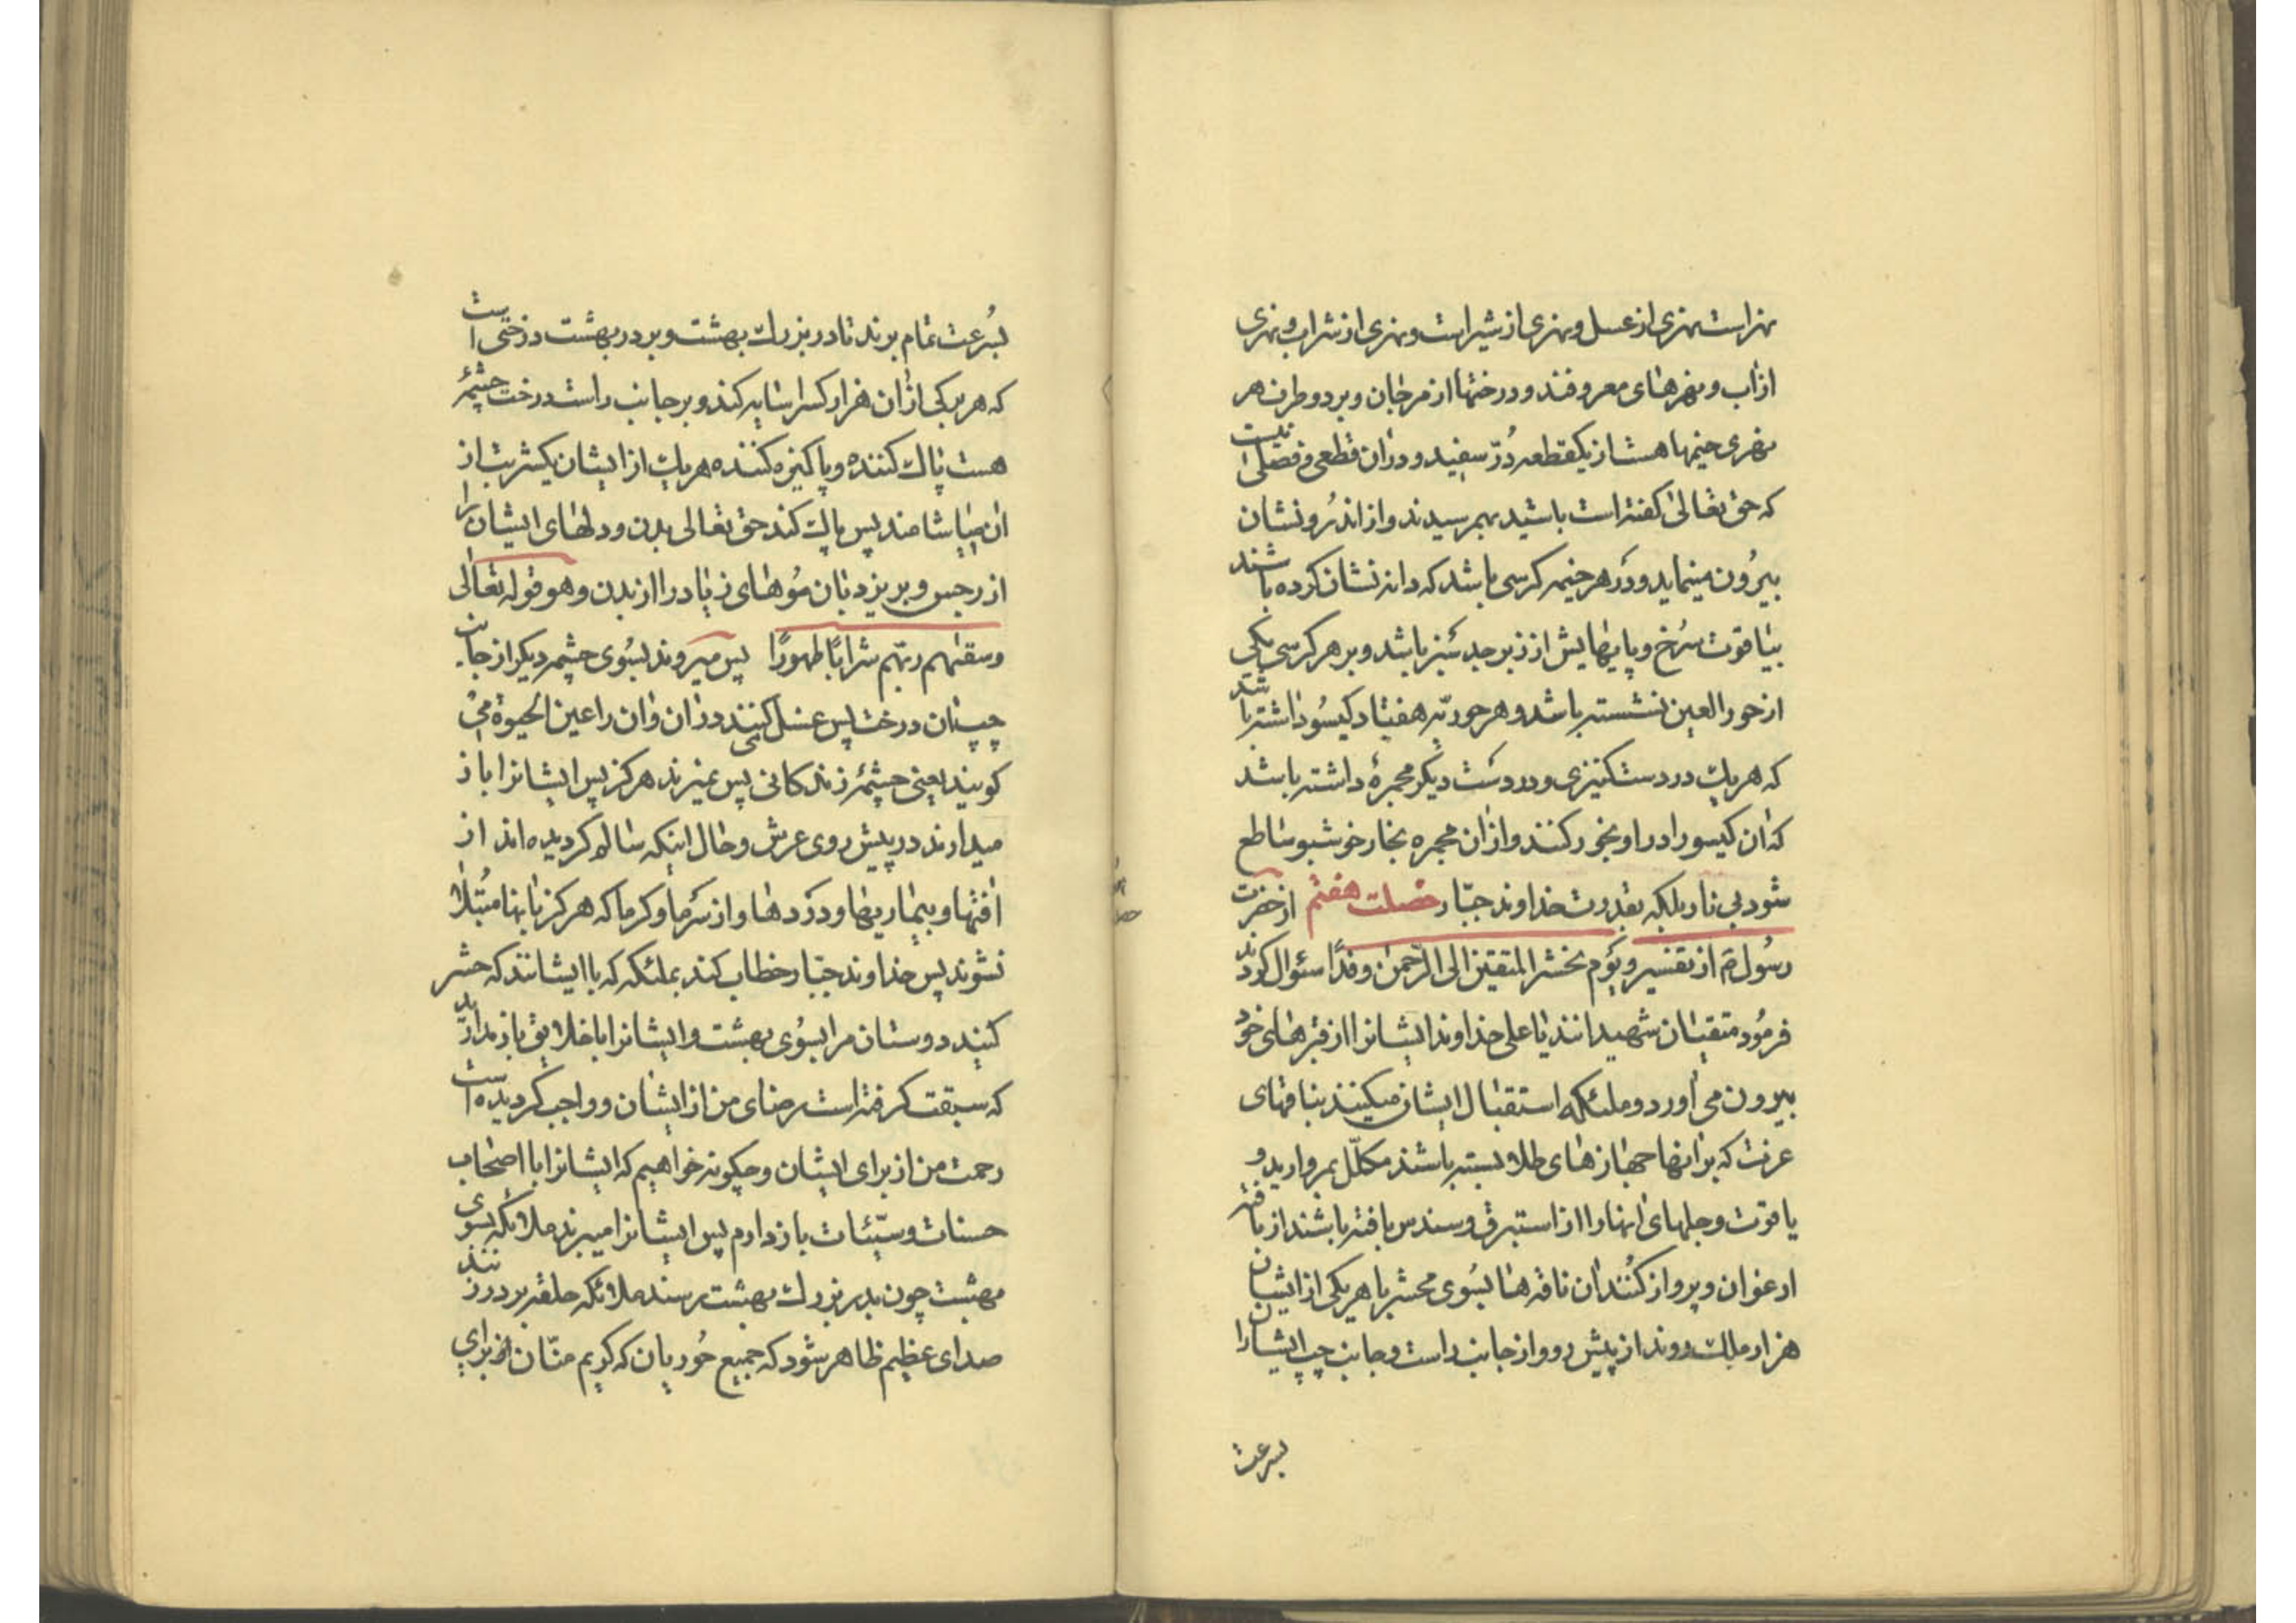 نهر است نهری از عسل و نهری از شیر است و نهری از شراب و نهری
از آب و نهرهای معروفند و درختها از مرجان و بر دو طرف هر
نهری خیمها هست از یکقطعه دُرّ سفید و در آن قطعی و فصلی نیست
که حق تعالی کفته است باشید بهم رسیدند و از اندرُون نشان
بیرُون مینماید و در هر خیمه کرسی باشد که دانه نشان کرده باشند
بیاقوت سُرخ و پایهایش از زبرجد سَبز باشد و بر هر کرسی یکی
از حور العین نشسته باشد و هر حوریّه هفتاد کیسُو داشته باشد
که هریک در دست کنیزی و در دست دیکر مجمرهٔ داشته باشد
که آن کیسو را در او بخور کنند و از آن مجمره بخار خوشبو ساطع
شود بی نار بلکه بقدرت خداوند جبّار خصلت هفتم از حضرت
رسُول ص از تفسیر و یوم نحشر المتقین الی الرّحمن وفدًا سئوال کردند
فرمُود متقیان شهیدانند یا علی خداوند ایشانرا از قبرهای خود
بیرون می آورد و ملئکه استقبال ایشان میکنند بناقهای
عزت که بر آنها جهازهای طلا بسته باشند مکلّل بمروارید و
یاقوت و جلهای آنها را از استبرق و سندس بافته باشند از بافته
ارغوان و پرواز کُنند آن ناقه ها بسُوی محشر با هر یکی از ایشان
هزار ملک روند از پیش رو و از جانب راست و جانب چپ ایشانرا
بسرعت
بسُرعت تمام برند تا در بزرك بهشت و بر در بهشت درختی است
که هر برکی از آن هزار کس را سایه کند و بر جانب راست درخت چشمهٔ
هست پاك کننده و پاکیزه کننده هریك از ایشان یکشربت از
آن میاشامند پس پاك کند حق تعالی بدن و دلهای ایشان را
از رجس و بریزد بآن مُوهای زیاد را از بدن و هو قوله تعالی
و سقیٰهم ربّهم شرابًا طهورًا پس میروند بسُوی چشمه دیکر از جانب
چپ آن درخت پس غسل کنند در آن و آن را عین الحیوة می
کویند یعنی چشمهٔ زندکانی پس نمیرند هرکز پس ایشانرا باز
میدارند در پیش روی عرش و حال اینکه سالم کردیده اند از
افتها و بیماریها و دردها و از سَرما و کرما که هرکز باینها مُبتلا
نشوند پس خداوند جبّار خطاب کند بملئکه که با ایشانند که حشر
کنید دوستان مرا بسُوی بهشت و ایشانرا با خلایق باز مدارید
که سبقت کرفته است رضای من از ایشان و واجب کردیده است
رحمت من از برای ایشان و چکونه خواهیم که ایشانرا با اصحاب
حسنات و سیّئات باز دارم پس ایشانرا میبرند ملائکه بسوی
بهشت چون بدر بزرك بهشت رسند ملائکه حلقه بر در زنند
صدای عظیم ظاهر شود که جمیع حُوریان که کریم منّان از برای